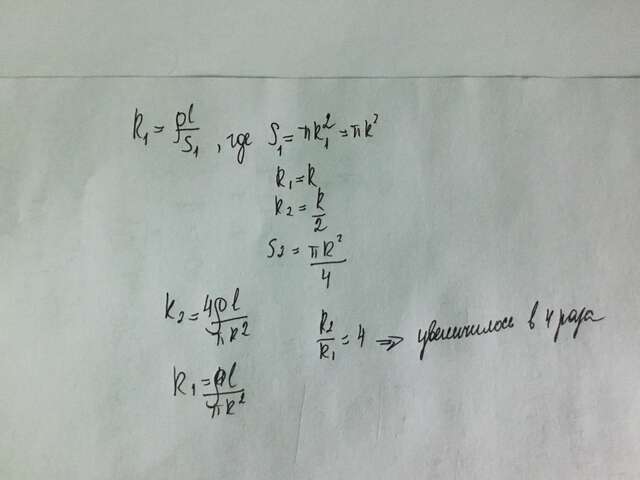 R₁ = ρl/S₁, где S₁ = πR₁² = πR²
R₁ = R
R₂ = R/2
S₂ = πR²/4
R₂ = 4ρl/πR²
R₂/R₁ = 4 ⇒ увеличилось в 4 раза
R₁ = ρl/πR²